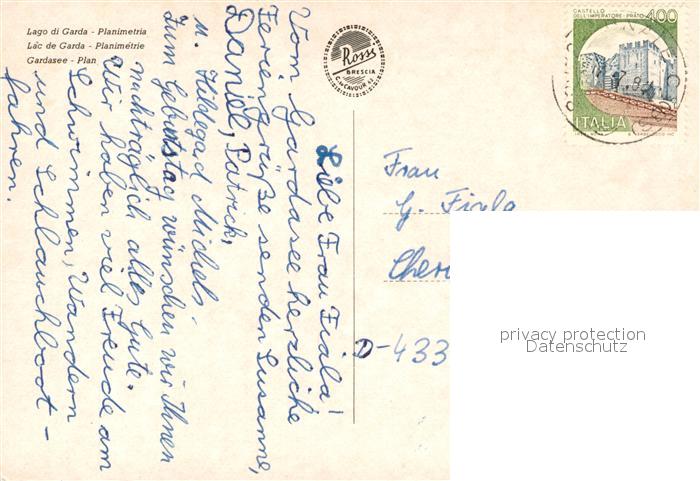 Lago di Garda - Planimetria
Lac de Garda - Planimetrie
Gardasee - Plan
Rossi
BRESCIA
C.so CAVOUR 42
CASTELLO
DELL'IMPERATORE - PRATO
400
ITALIA
Liebe Frau Fiala!
Vom Gardasee herzliche
Feriengrüße senden Susanne,
Daniel, Patrick,
u. Hildegard Michels.
Zum Geburtstag wünschen wir Ihnen
nachträglich alles Gute.
Wir haben viel Freude am
Schwimmen, Wandern
und Schlauchboot-
fahren.
Frau
G. Fiala
D-433
privacy protection
Datenschutz